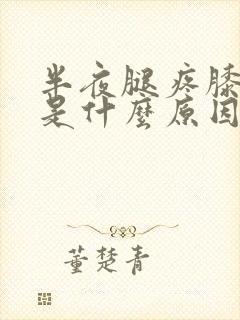 半夜腿疼膝
是什麽原因
董楚青